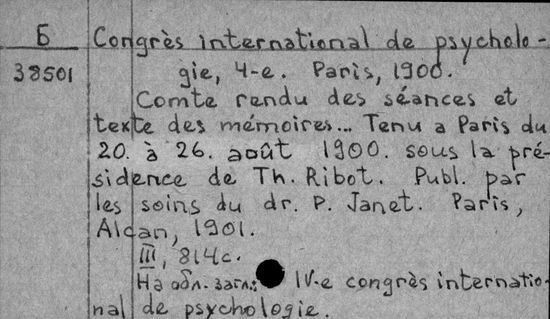 Б Congrès international de psycholo-
38501 gie, 4-e. Paris, 1900.
Comte rendu des séances et
texte des mémoires... Tenu a Paris du
20. à 26. août 1900. sous la pré-
sidence de Th. Ribot. Publ. par
les soins du dr. P. Janet. Paris,
Alcan, 1901.
III, 814c.
На обл. загл.: IV-e congrès internatio-
nal de psychologie.